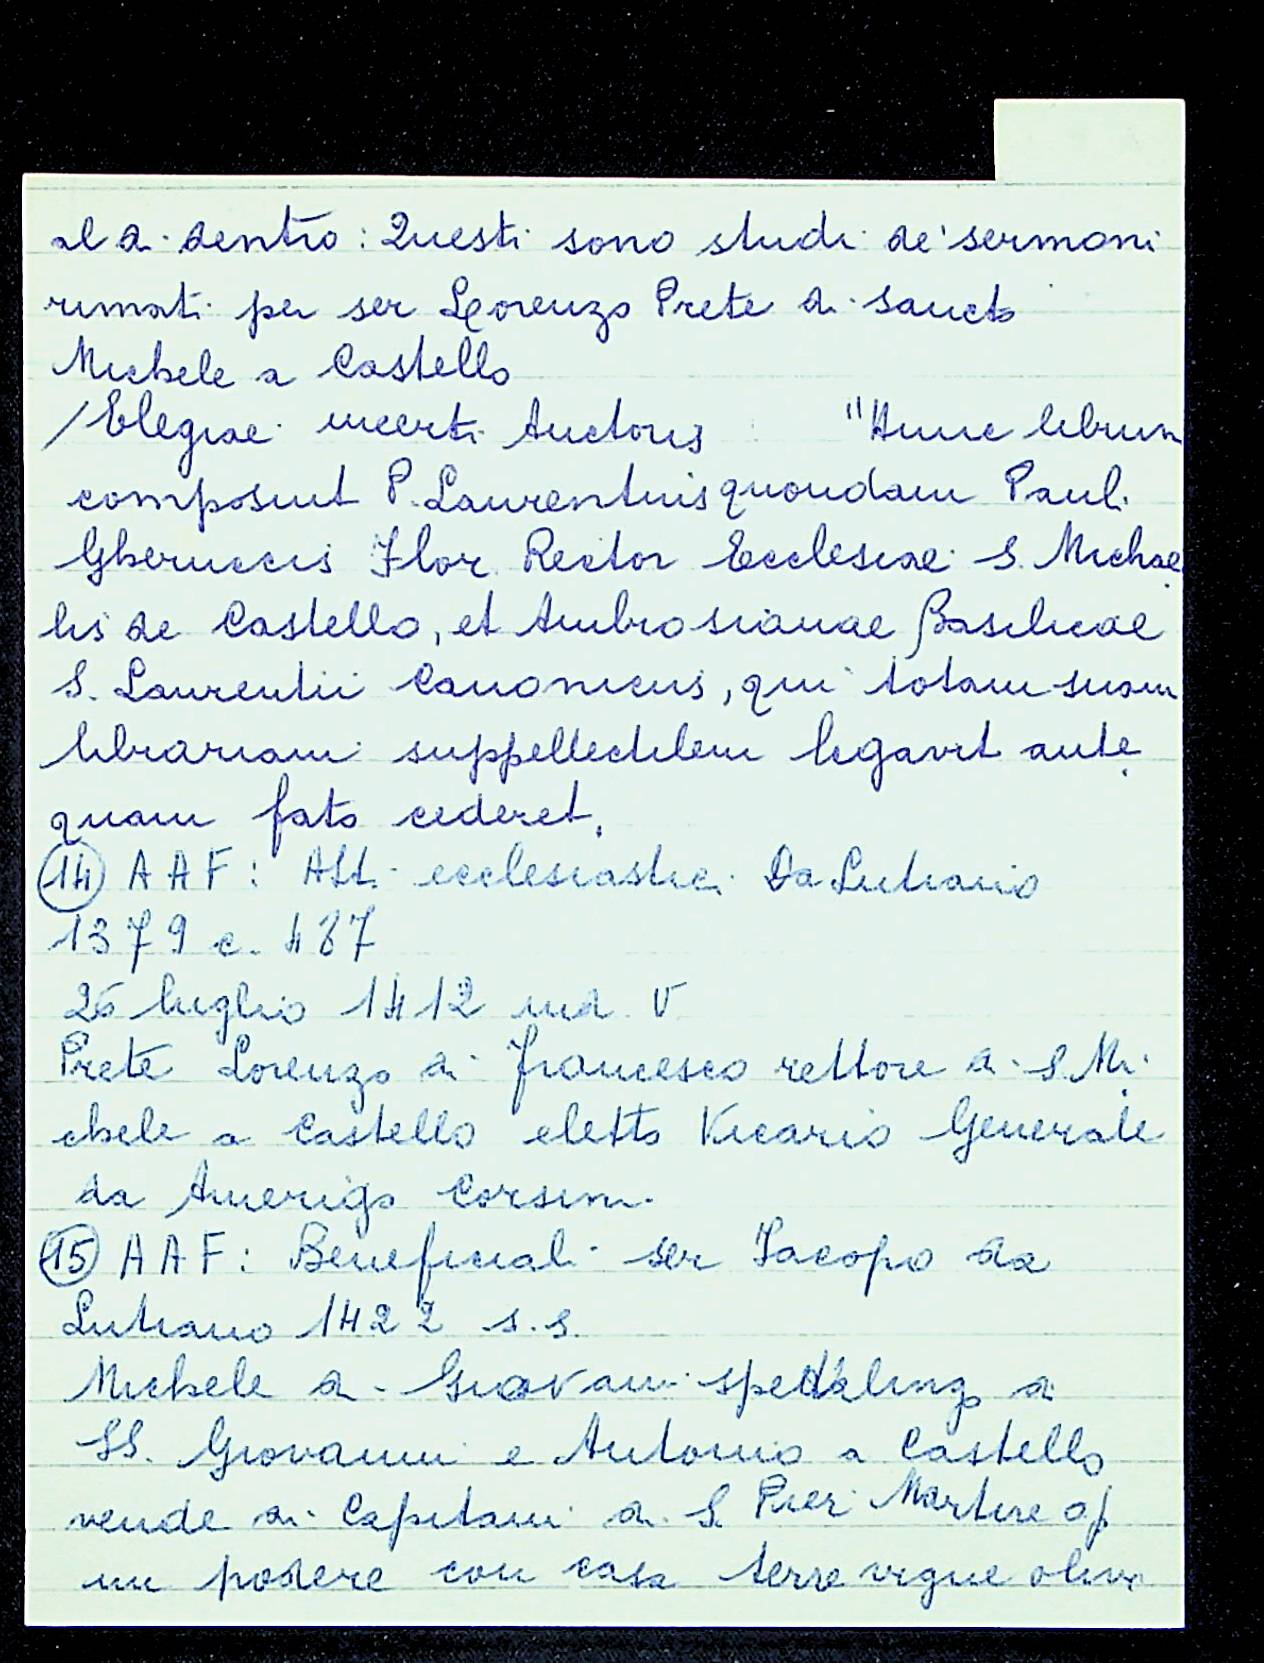 al di dentro: Questi sono studi de' sermoni
rimati per ser Lorenzo Prete di sancto
Michele a Castello
/Elegiae incerti Auctoris "Hunc librum
composuit P. Laurentius quondam Pauli
Gheruccis Flor. Rector Ecclesiae S. Michae
lis de Castello, et Ambrosianae Basilicae
S. Laurentii Canonicus, qui totam suam
librariam suppellectilem legavit ante
quam fato cederet.
14 AAF: Atti ecclesiastici Da Lutiano
1379 c. 487
26 luglio 1412 ind. V
Prete Lorenzo di Francesco rettore di S. Mi
chele a Castello eletto Vicario Generale
da Amerigo Corsini.
15 AAF: Beneficiali ser Jacopo da
Lutiano 1422 s.s.
Michele di Giovanni spedalingo di
SS. Giovanni e Antonio a Castello
vende ai Capitani di S. Pier Martire
un podere con casa terre vigne olivi